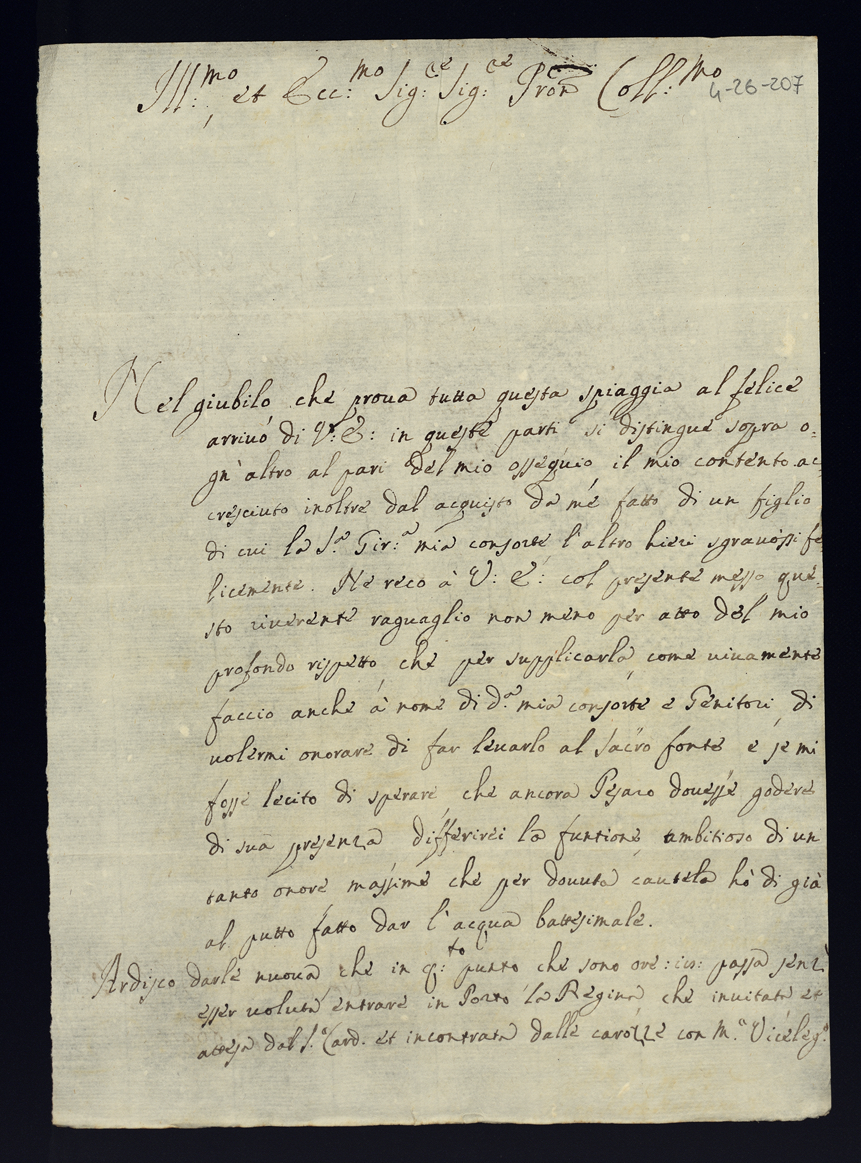 Ill:mo et Ecc:mo Sig:re Sig:re Pron Coll:mo
4-26-207
Nel giubilo che prova tutta questa spiaggia al felice
arriuó di V: E: in queste parti si distingue sopra o=
gn' altro al pari del mio ossequio il mio contento ac=
cresciuto inoltre dal acquisto da mé fatto di un figlio
di cui la S.a Gir:a mia consorte l'altro hieri sgrauossi fe
licemente. Ne reco à V: E: col presente messo que=
sto riuerente raguaglio non meno per atto del mio
profondo rispetto, che per supplicarla, come uiuamente
faccio anche à nome di d.a mia consorte e Genitori, di
uolermi onorare di far leuarlo al sacro fonte e se mi
fosse lecito di sperare che ancora Pesaro douesse godere
di sua presenza differirei la funtione, ambitioso di un
tanto onore massime che per douuta cautela hó di già
al putto fatto dar l'acqua battesimale.
Ardisco darle nuoua, che in q:to punto che sono ore: passa senza
esser uoluta entrare in Porto la Regina che inuitata et
attesa dal S.r Card. et incontrata dalle carozze con M.r Viceleg.o